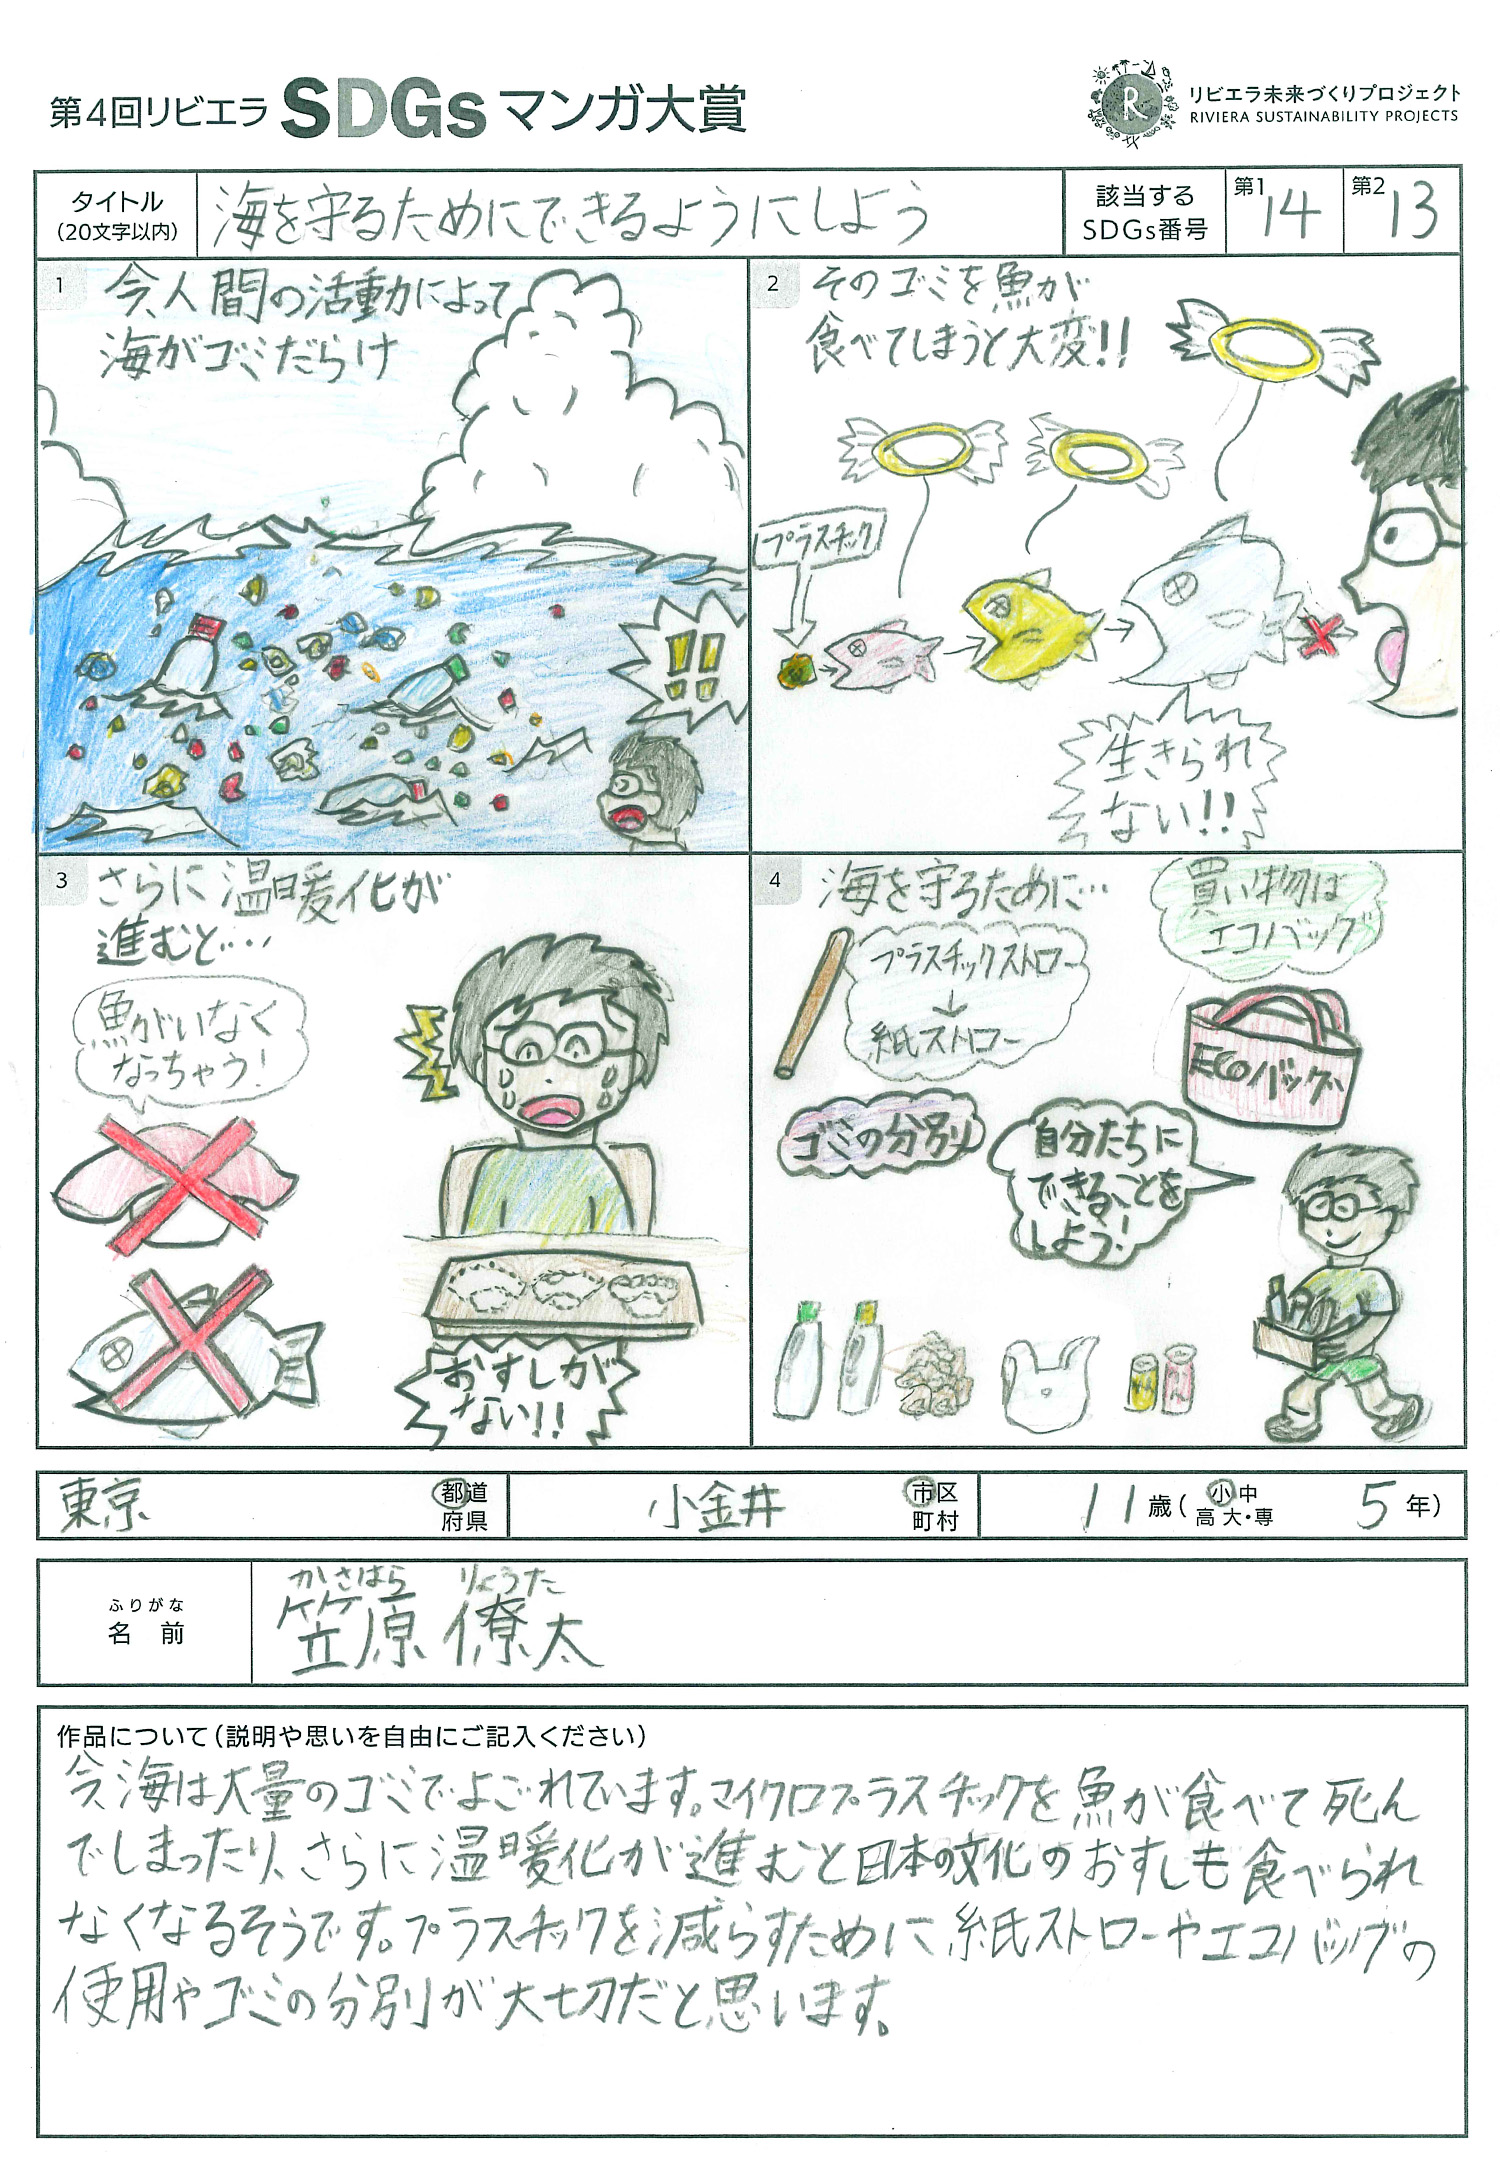 第4回リビエラ SDGs マンガ大賞
リビエラ未来づくりプロジェクト
RIVIERA SUSTAINABILITY PROJECTS
タイトル
(20文字以内)
海を守るためにできるようにしよう
該当する
SDGs番号
第1
14
第2
13
1
今、人間の活動によって
海がゴミだらけ
!!
2
そのゴミを魚が
食べてしまうと大変!!
プラスチック
生きられ
ない!!
3
さらに温暖化が
進むと…
魚がいなく
なっちゃう!
おすしが
ない!!
4
海を守るために…
プラスチックストロー
↓
紙ストロー
買い物は
エコバッグ
ECOバッグ
ゴミの分別
自分たちに
できることを
しよう!
東京
都道
府県
小金井
市区
町村
11歳(小中
高大・専
5年)
ふりがな
名前
かさはら りょうた
笠原 僚太
作品について(説明や思いを自由にご記入ください)
今海は大量のゴミでよごれています。マイクロプラスチックを魚が食べて死ん
でしまったり、さらに温暖化が進むと日本の文化のおすしも食べられ
なくなるそうです。プラスチックを減らすために紙ストローやエコバッグの
使用やゴミの分別が大切だと思います。